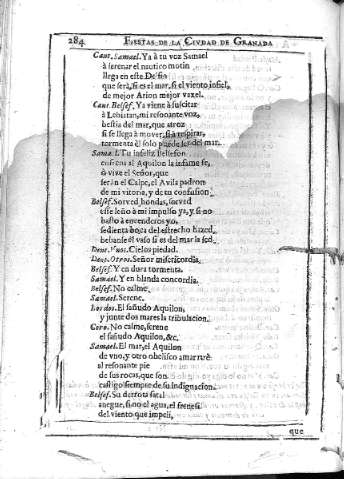 284 FIESTAS DE LA CIUDAD DE GRANADA
Cant. Samael. Ya à tu voz Samael
à serenar el nautico motin
llega en este Delfin
que serà, si es el mar, si el viento infiel,
de mejor Arion mejor vaxel.
Cant. Belsef. Ya viene à suscitar
à Lebiatan, mi resonante voz,
bestia del mar, que atroz
si se llega à mover, si à respirar,
tormenta èl solo puede ser del mar.
Samael. Tu infeliz Belsefon
enfrena al Aquilon la infame fe,
ò vive el Señor, que
seràn el Calpe, el Avila padron
de mi vitoria, y de tu confusion
Belsef. Sorved, hondas, sorved
esse leño à mi impulso ya, y si no
basto à encenderos yo,
sedienta boca del estrecho hazed
beban el vaso si es del mar la sed.
Dent. Vnos. Cielos piedad.
Dent. Otros. Señor misericordia.
Belsef. Y en dura tormenta.
Samael. Y en blanda concordia.
Belsef. No calme.
Samael. Serene.
Los dos. El sañudo Aquilon,
y junte dos mares la tribulacion.
Coro. No calme, serene
el sañudo Aquilon, &c.
Samael. El mar, el Aquilon
de vno, y otro obelisco amarrarè
al resonante pie
de sus rocas, que son
castigo siempre de su indignacion.
Belsef. Su derrota fatal
anegue, si no el agua, el frenesi
del viento que impelì,
que